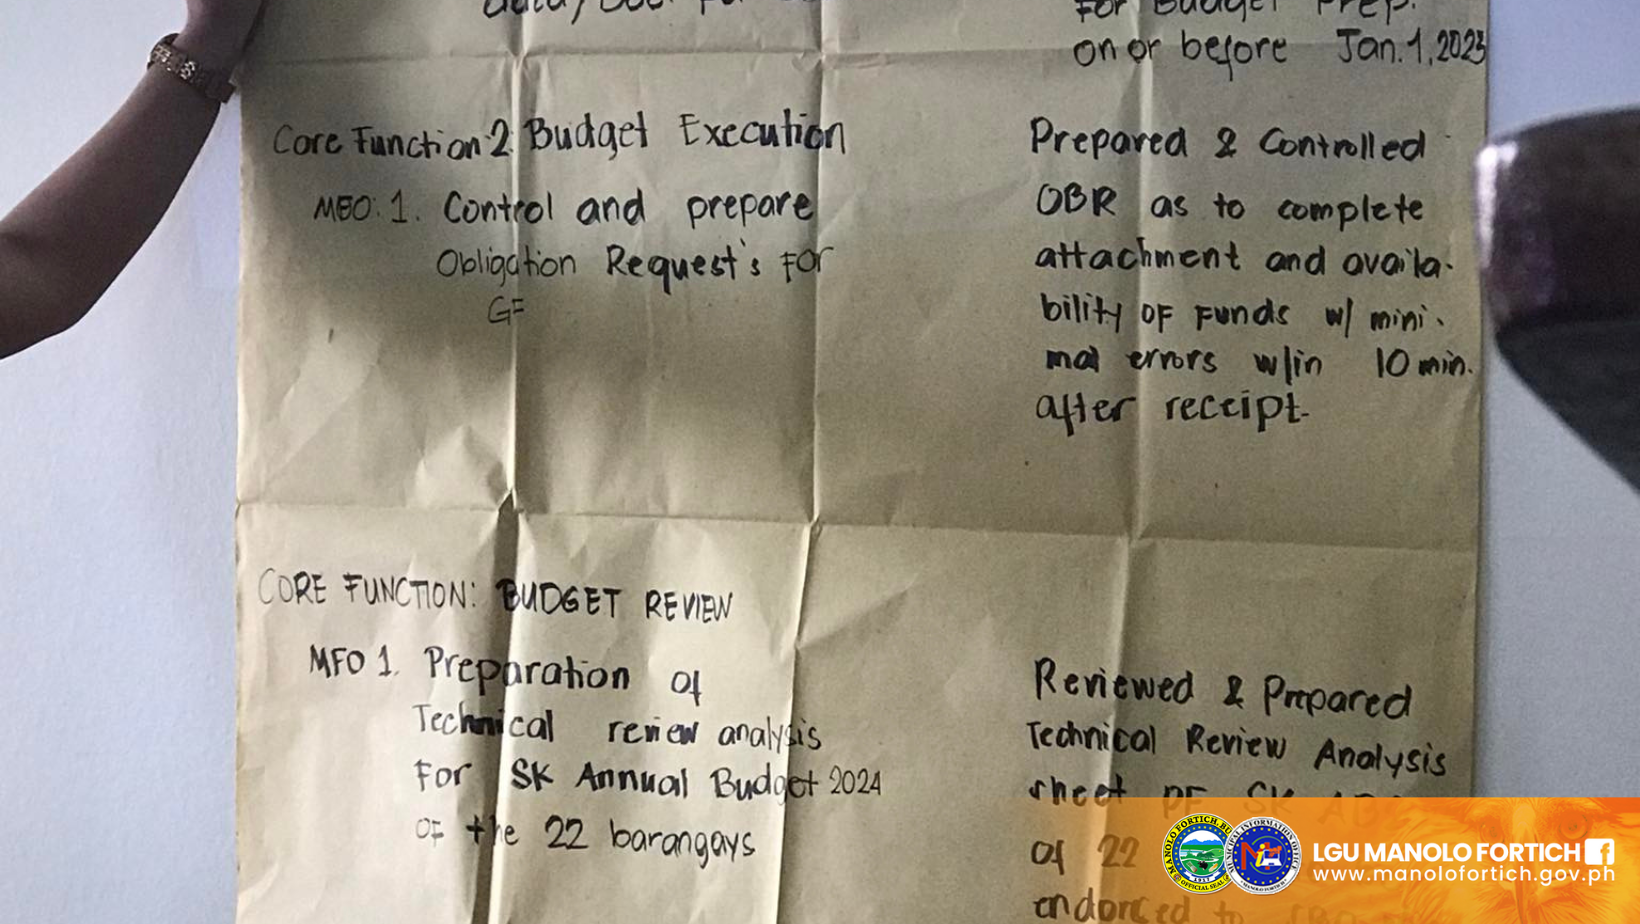 For Budget Prep.
on or before Jan. 1, 2023
Core Function 2: Budget Execution
MFO: 1. Control and prepare
Obligation Request's For
GF
Prepared & Controlled
OBR as to complete
attachment and availa-
bility of Funds w/ mini-
mal errors w/in 10 min.
after receipt.
CORE FUNCTION: BUDGET REVIEW
MFO 1. Preparation of
Technical review analysis
For SK Annual Budget 2024
of the 22 barangays
Reviewed & Prepared
Technical Review Analysis
sheet of SK
of 22
endorsed to
LGU MANOLO FORTICH
www.manolofortich.gov.ph
MANOLO FORTICH
OFFICIAL SEAL
MUNICIPAL INFORMATION OFFICE